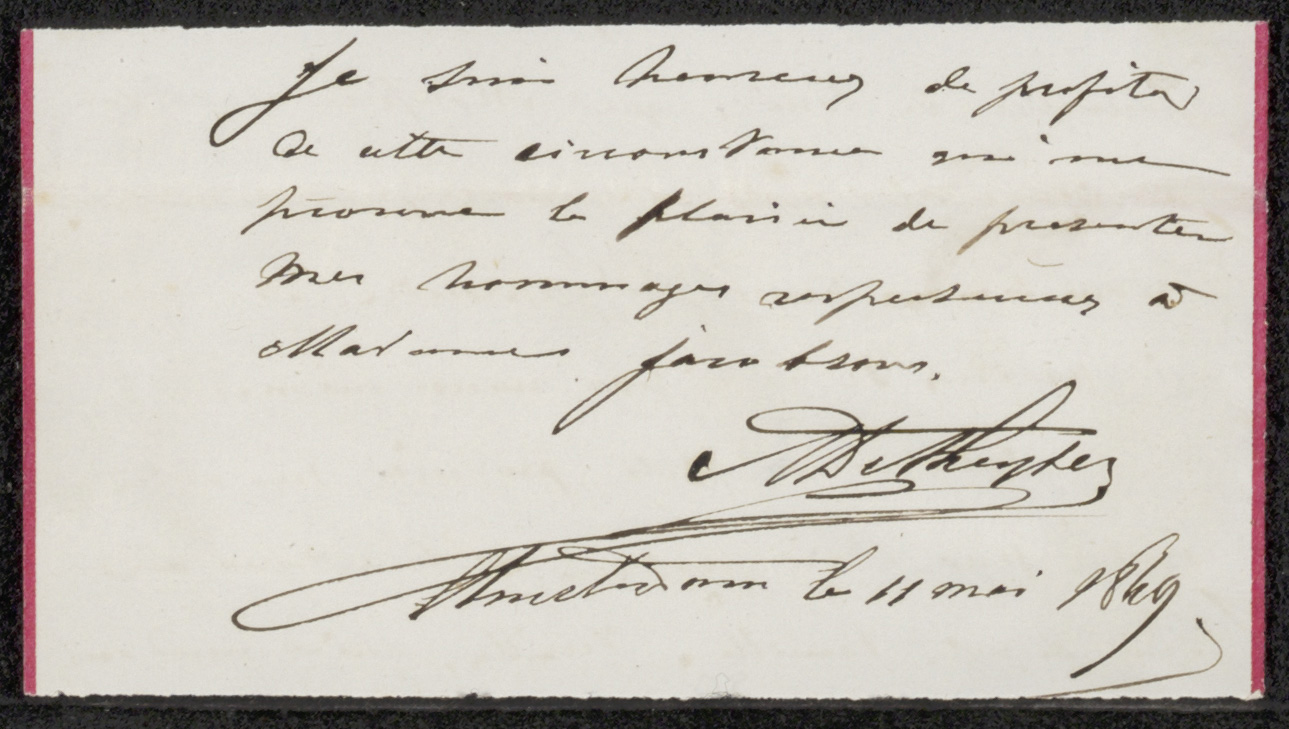 Je suis heureux de profiter
de cette circonstance qui me
procure le plaisir de presenter
Mes hommages respectueux à
Mesdames Jacobsons.
Amsterdam le 11 mai 1849